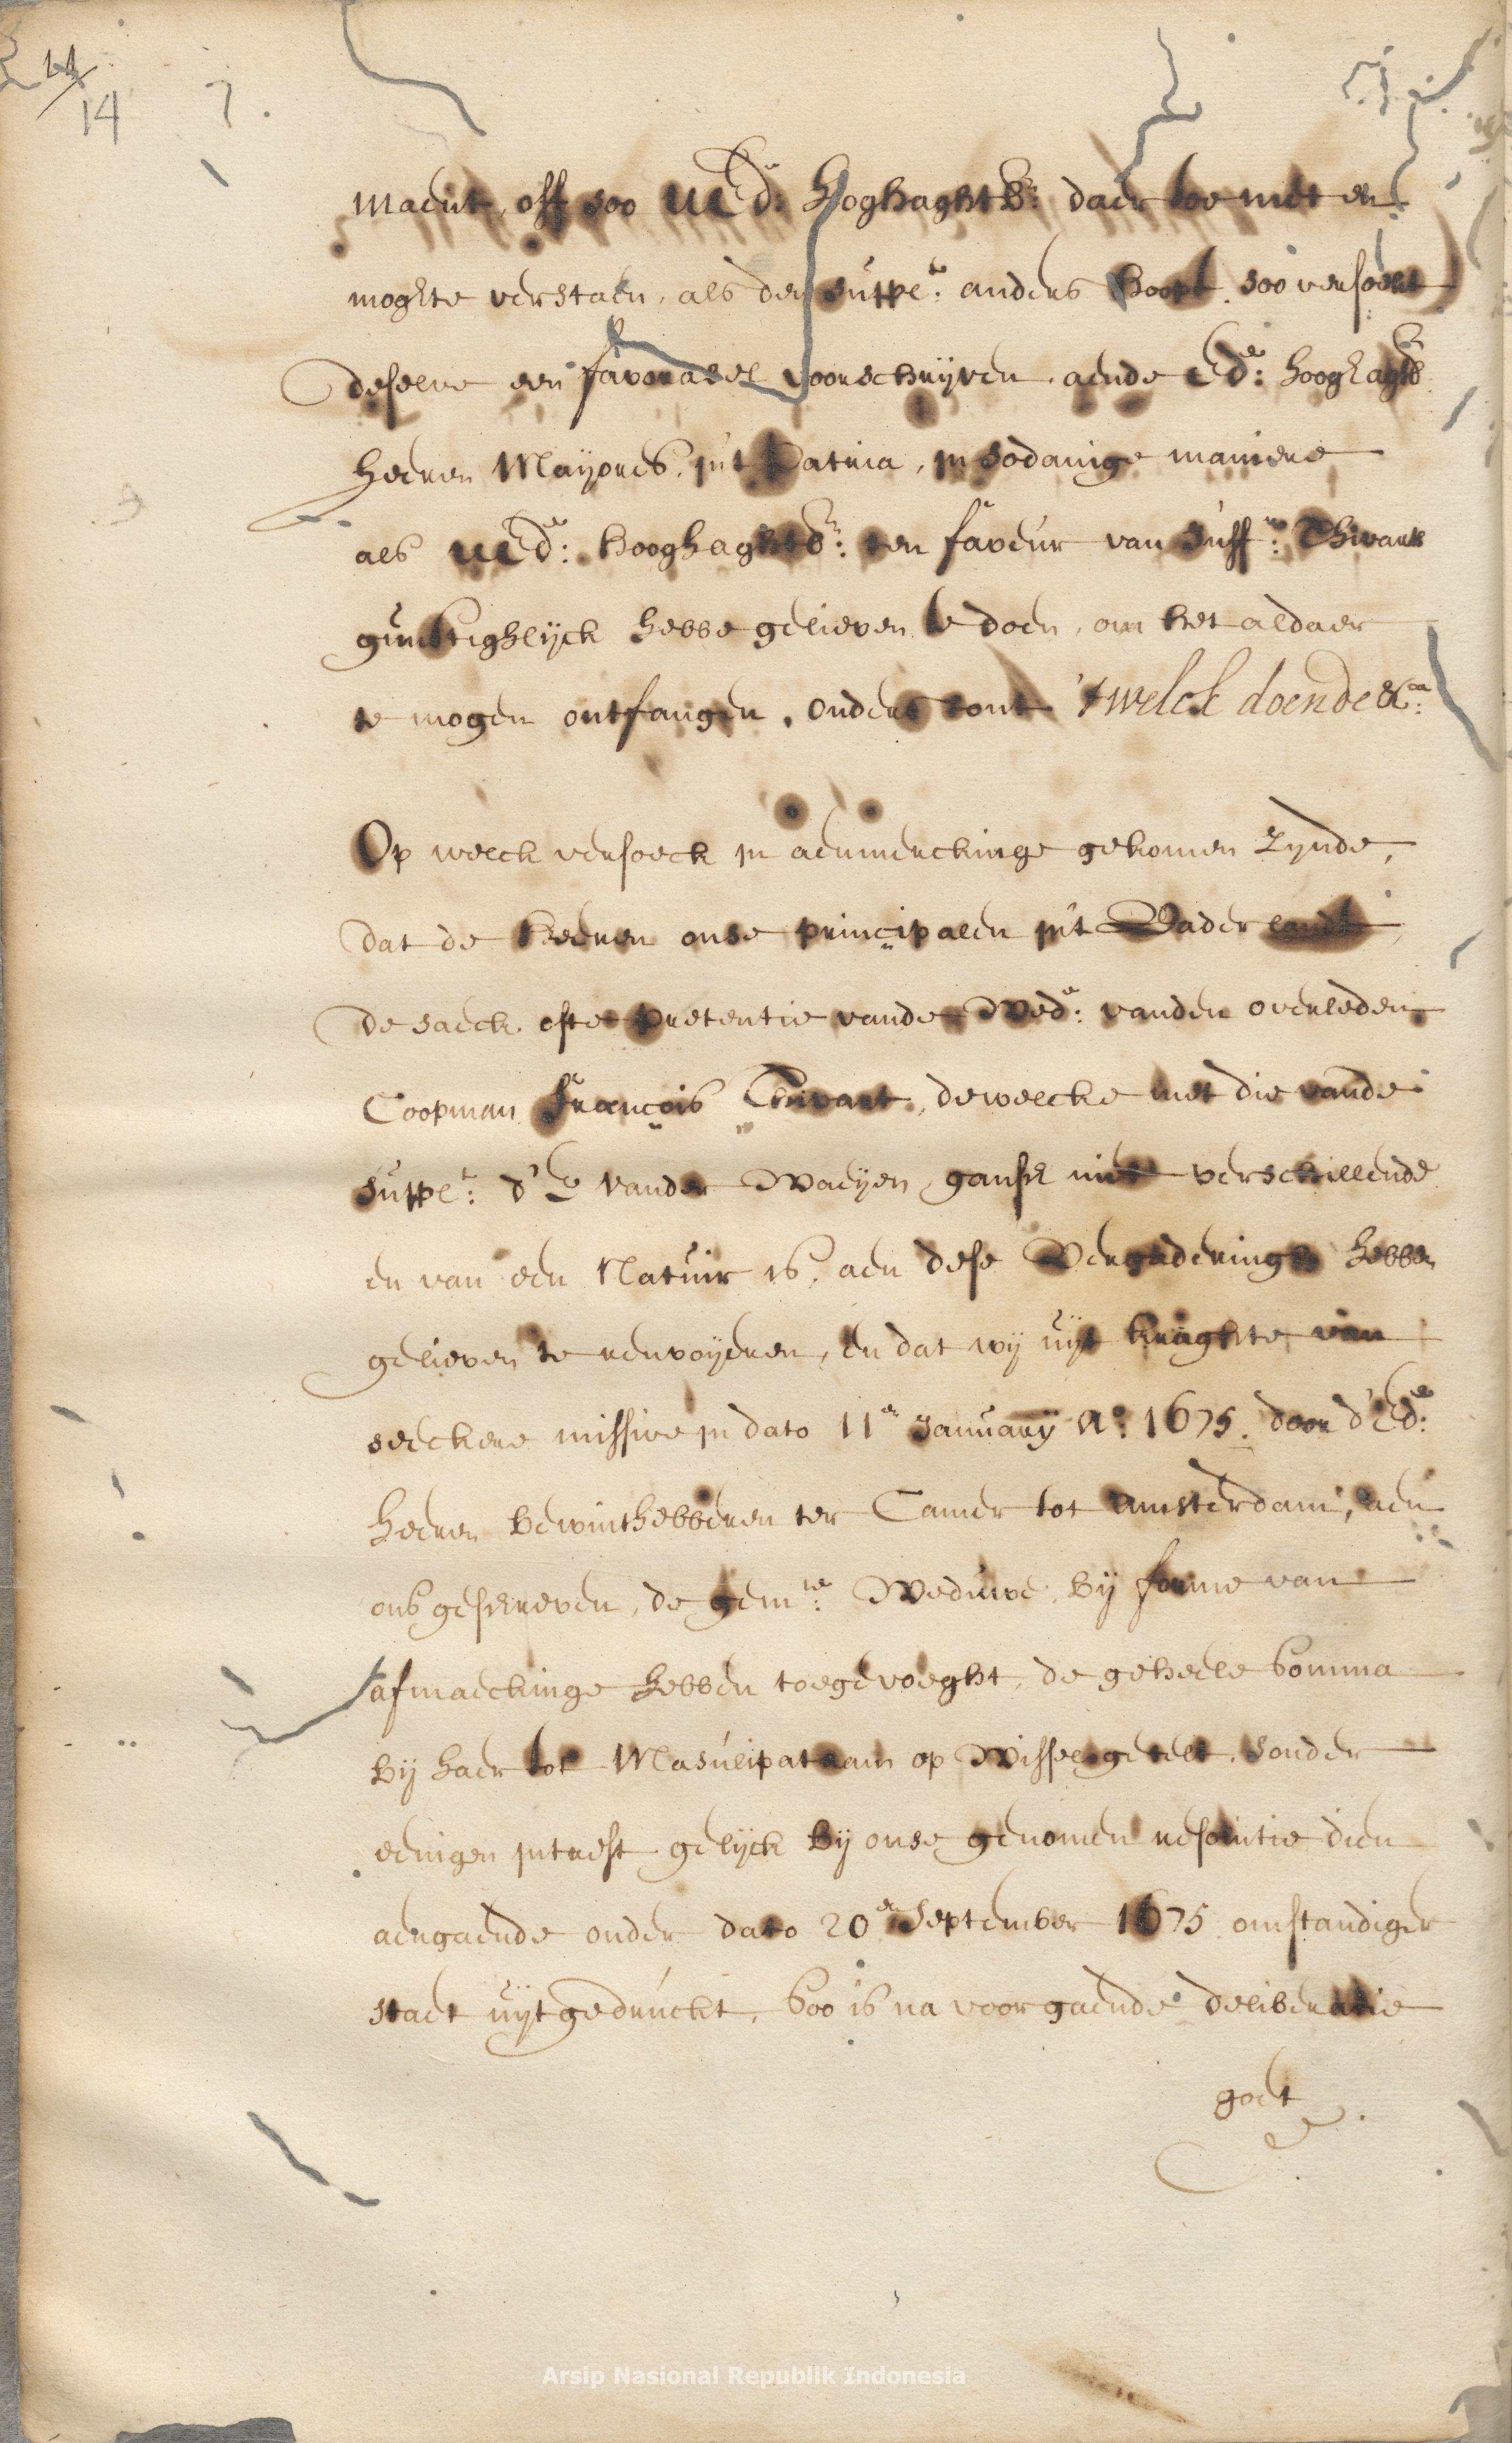 14
14
7.
maent, off soo UEd.e: hooghaghtb:r daer toe niet en
moghte verstaen, als den suppl:te anders hoopt, soo versoekt
deselve een favorabel voorschrijven, aende Ed.e: hooghagtb.r
heeren Mayores, in't Patria, in sodanige maniere
als UEd.e: hooghaghtb.r: ten faveur van Juff.w: Thivart
gunstighlijck hebbe gelieven te doen, om het aldaer
te mogen ontfangen. onderstont 't welck doende &.ca:
Op welck versoeck in aenmerckinge gekomen zynde,
dat de heeren onse principalen in't Vaderlandt,
de saeck ofte pretentie vande Wed.e: vanden overleden
Coopman François Thivart, dewelcke met die vande
suppl:te d'E vander Waeyen, gansch niet verschillende
en van een Natuir is, aen dese Vergaderinge hebben
gelieven te renvoyeren, en dat wij uijt kraghte van
seeckere missive in dato 11.en January A.o: 1675. door d'Ed.e:
heeren bewinthebberen ter Camer tot Amsterdam, aen
ons geschreven, de gem.te: Weduwe, bij forme van
afmaeckinge hebben toegevoeght, de geheele somma
bij haer tot Masulipatnam op Wissel getelt, sonder
eenigen intrest gelijck bij onse genomen resolutie dien
aengaende onder dato 20.en September 1675 omstandiger
staet uijtgedruckt, soo is na voorgaende deliberatie
goet
Arsip Nasional Republik Indonesia